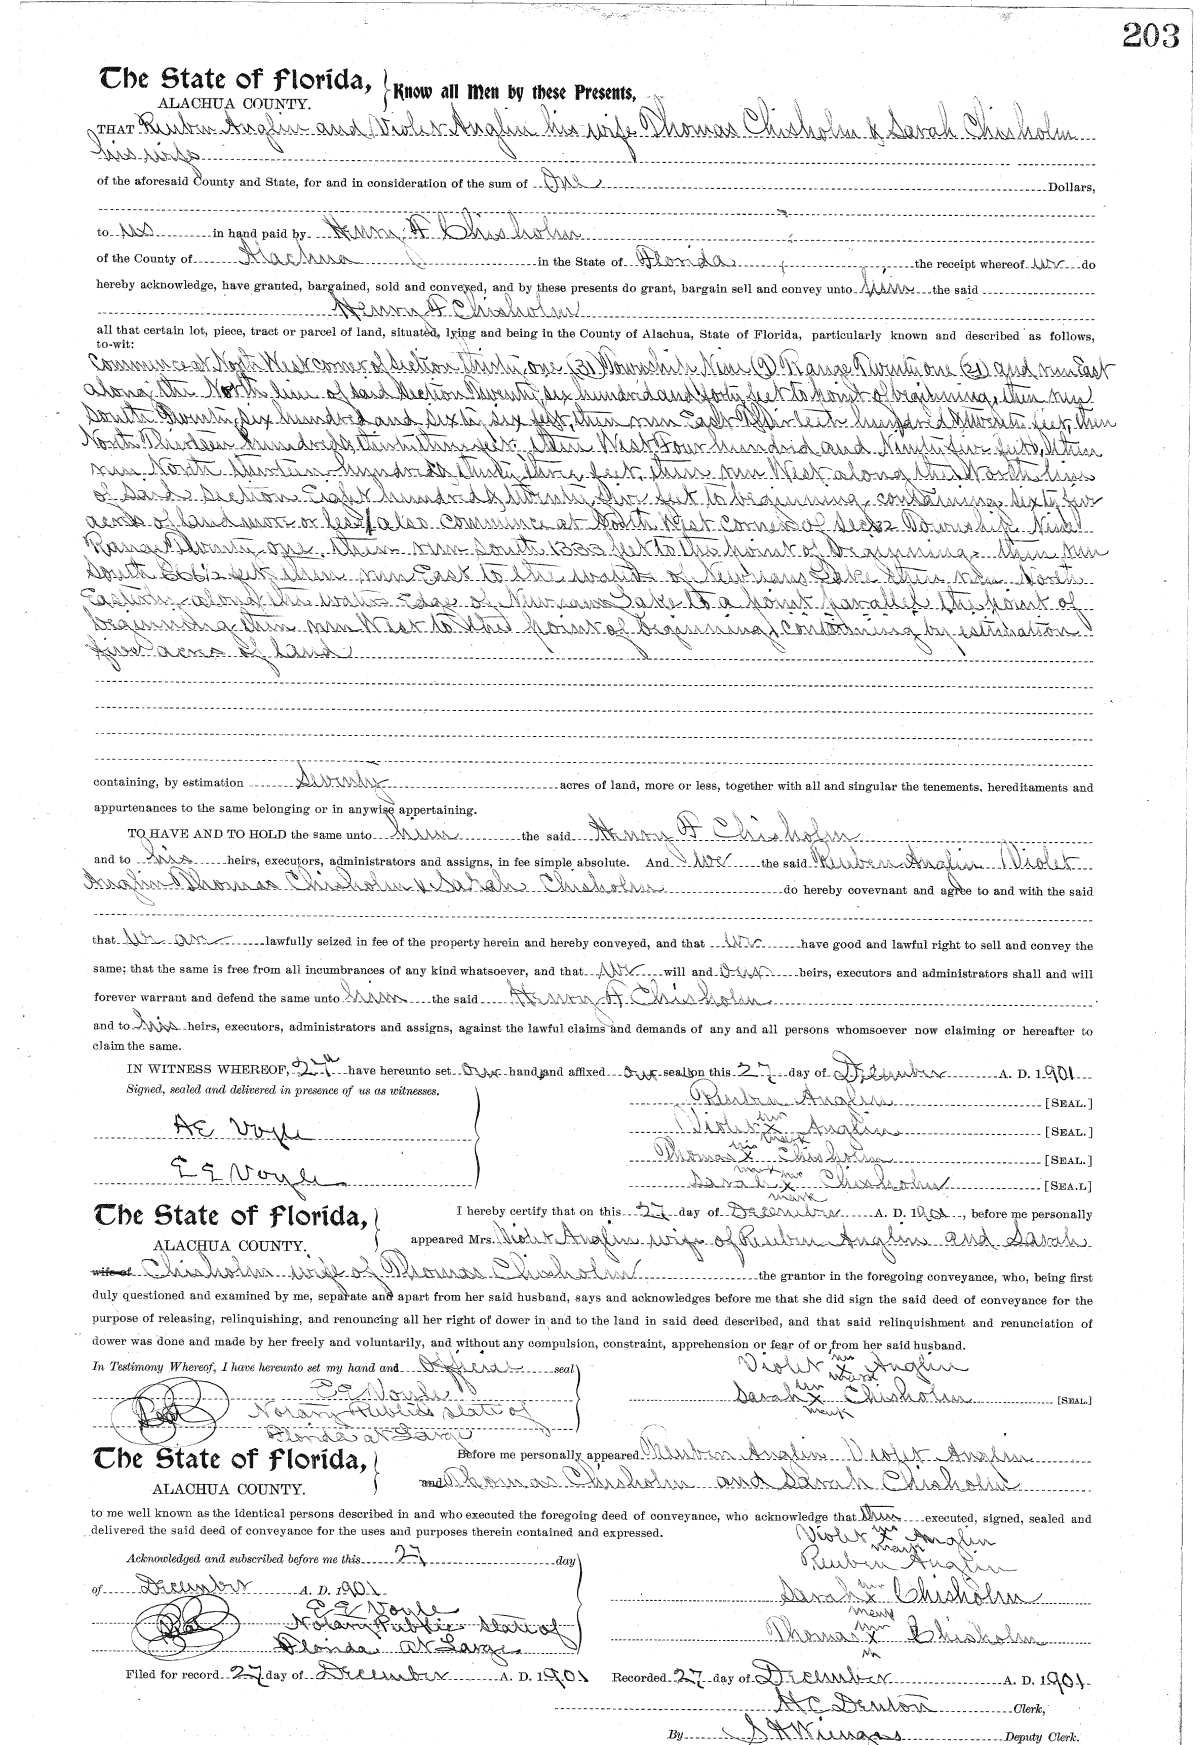 203
The State of Florida, Know all Men by these Presents,
ALACHUA COUNTY.
THAT Reuben Anglin and Violet Anglin his wife Thomas Chisholm & Sarah Chisholm
his wife
of the aforesaid County and State, for and in consideration of the sum of One Dollars,
to us in hand paid by Henry F Chisholm
of the County of Alachua in the State of Florida the receipt whereof we do
hereby acknowledge, have granted, bargained, sold and conveyed, and by these presents do grant, bargain sell and convey unto him the said
Henry F Chisholm
all that certain lot, piece, tract or parcel of land, situated, lying and being in the County of Alachua, State of Florida, particularly known and described as follows,
to-wit:
Commence at North West corner of Section thirty one (31) Township Nine (9) Range Twenty one (21) and run East
along the North line of said Section Twenty six hundred and forty feet to point of beginning, then run
South Twenty six hundred and sixty six feet, then run East hundred & twenty feet, then
North Thirteen hundred & thirty three feet, then West Four hundred and Ninety five feet, then
run North thirteen hundred & thirty three feet, then run West along the North line
of said Section Eight hundred & twenty five feet to beginning, containing sixty five
acres of land more or less, also commence at North West corner of Sec 32 Township Nine
Range Twenty one, then run South 1333 feet to the point of beginning, then run
South feet, then run East to the waters of Newnans Lake then run North
Easterly along the waters Edge of Newnans Lake to a point parallel the point of
beginning, then run West to the point of beginning, containing by estimation
five acres of land
containing, by estimation Seventy acres of land, more or less, together with all and singular the tenements, hereditaments and
appurtenances to the same belonging or in anywise appertaining.
TO HAVE AND TO HOLD the same unto him the said Henry F Chisholm
and to his heirs, executors, administrators and assigns, in fee simple absolute. And we the said Reuben Anglin Violet
Anglin Thomas Chisholm & Sarah Chisholm do hereby covevnant and agree to and with the said
that we are lawfully seized in fee of the property herein and hereby conveyed, and that we have good and lawful right to sell and convey the
same; that the same is free from all incumbrances of any kind whatsoever, and that we will and our heirs, executors and administrators shall and will
forever warrant and defend the same unto him the said Henry F Chisholm
and to his heirs, executors, administrators and assigns, against the lawful claims and demands of any and all persons whomsoever now claiming or hereafter to
claim the same.
IN WITNESS WHEREOF, 27th have hereunto set our hand and affixed our seal on this 27 day of December A. D. 1901
Signed, sealed and delivered in presence of us as witnesses.
Reuben Anglin [SEAL.]
Violet her x mark Anglin [SEAL.]
AE Voyle
Thomas his x mark Chisholm [SEAL.]
E E Voyle
Sarah her x mark Chisholm [SEA.L]
The State of Florida, I hereby certify that on this 27 day of December A. D. 1901, before me personally
ALACHUA COUNTY. appeared Mrs. Violet Anglin wife of Reuben Anglin and Sarah
wife of Chisholm wife of Thomas Chisholm the grantor in the foregoing conveyance, who, being first
duly questioned and examined by me, separate and apart from her said husband, says and acknowledges before me that she did sign the said deed of conveyance for the
purpose of releasing, relinquishing, and renouncing all her right of dower in and to the land in said deed described, and that said relinquishment and renunciation of
dower was done and made by her freely and voluntarily, and without any compulsion, constraint, apprehension or fear of or from her said husband.
In Testimony Whereof, I have hereunto set my hand and Official seal
Violet her x mark Anglin
E E Voyle
Sarah her x mark Chisholm [SEAL.]
Seal Notary Public State of
Florida at Large
The State of Florida, Before me personally appeared Reuben Anglin Violet Anglin
ALACHUA COUNTY. and Thomas Chisholm and Sarah Chisholm
to me well known as the identical persons described in and who executed the foregoing deed of conveyance, who acknowledge that they executed, signed, sealed and
delivered the said deed of conveyance for the uses and purposes therein contained and expressed.
Violet her x mark Anglin
Acknowledged and subscribed before me this 27 day
Reuben Anglin
of December A. D. 1901
Sarah her x mark Chisholm
E E Voyle
Seal Notary Public State of
Thomas his x Chisholm
Florida At Large
Filed for record 27 day of December A. D. 1901 Recorded 27 day of December A. D. 1901
H C Denton Clerk,
By S H Wienges Deputy Clerk.